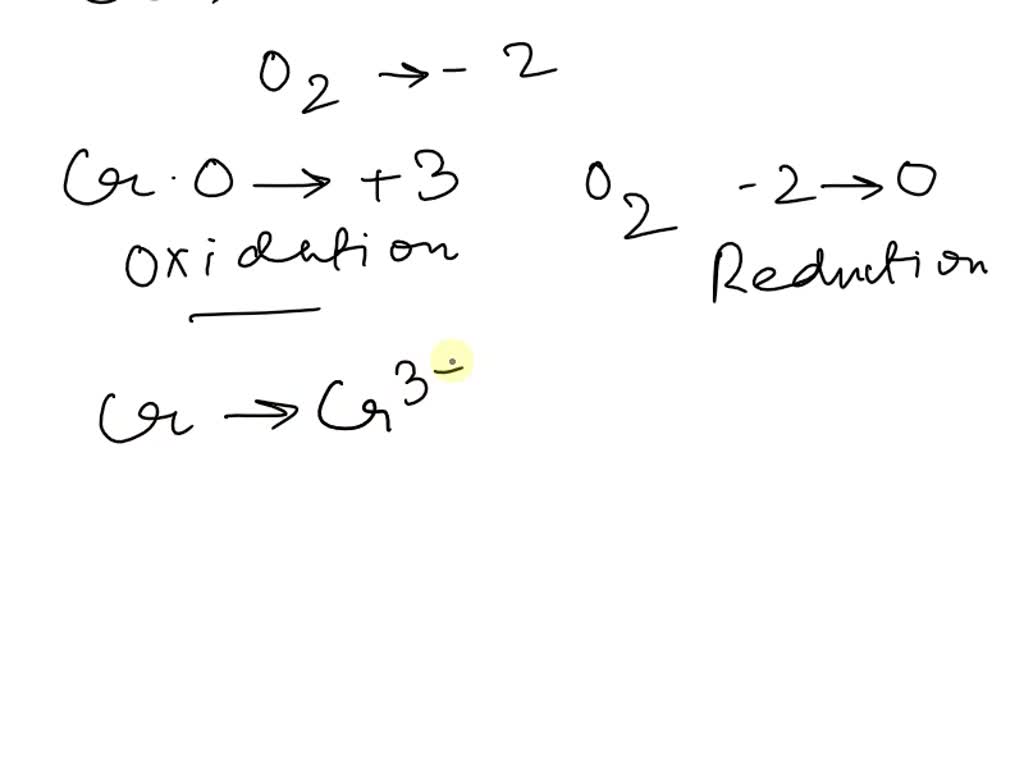 O2 → - 2
Cr · O → + 3 O2 - 2 → O
Oxidation Reduction
Cr → Cr3